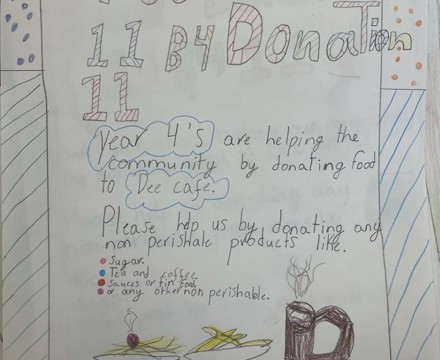 11 B4 Donation
11
Year 4's are helping the
community by donating food
to Dee cafe.
Please help us by donating any
non perishale products like.
Sugar.
Tea and coffee
Sauces or tin food
or any other non perishable.